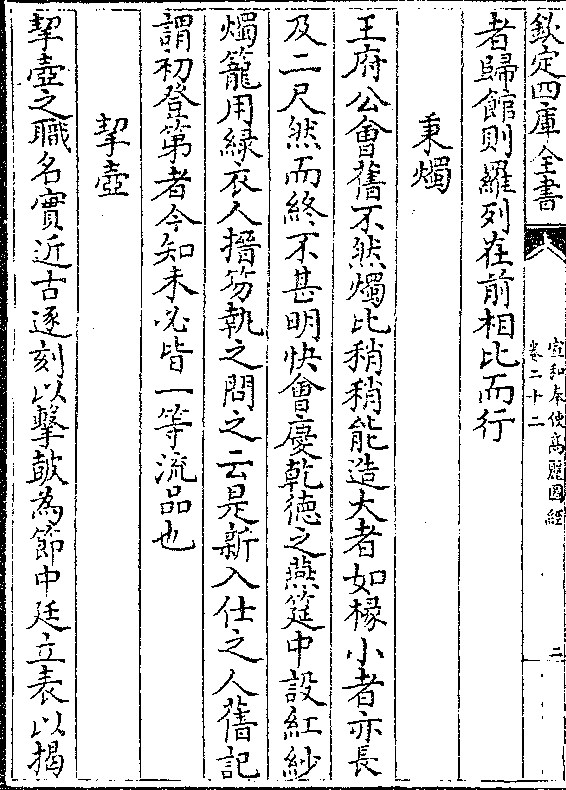 欽定四庫全書
宣和奉使高麗圖經
卷二十二
二
者歸館則羅列在前相比而行
秉燭
王府公會舊不然燭比稍稍能造大者如椽小者亦長
及二尺然而終不甚明快會慶乾德之燕筵中設紅紗
燭籠用緑衣人搢笏執之問之云是新入仕之人舊記
謂初登第者今知未必皆一等流品也
挈壺
挈壺之職名實近古逐刻以擊鼓為節中廷立表以揭